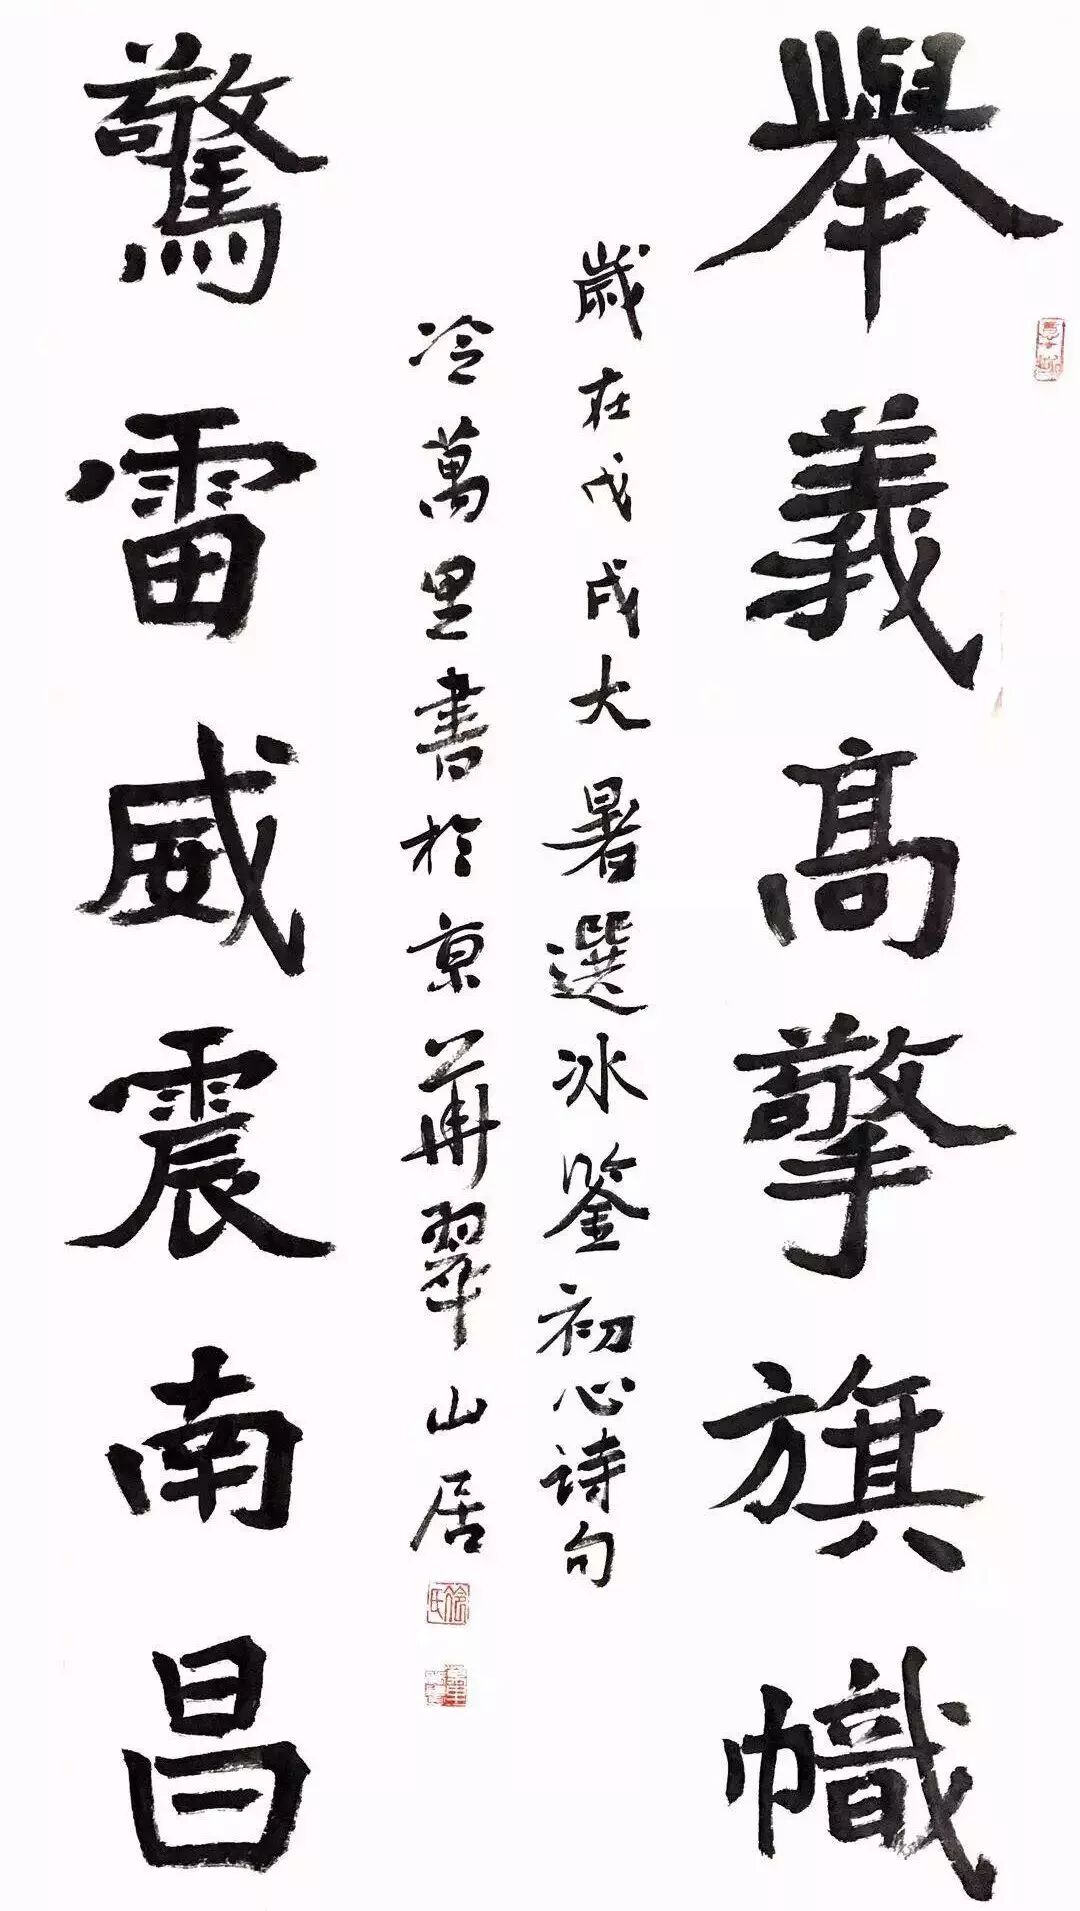 舉義高擎旗幟
歲在戊戌大暑選冰鉴初心诗句
冷萬里書於京華翠山居
冷氏
驚雷威震南昌